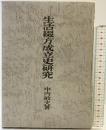 生活綴方成立史研究
中内敏夫著